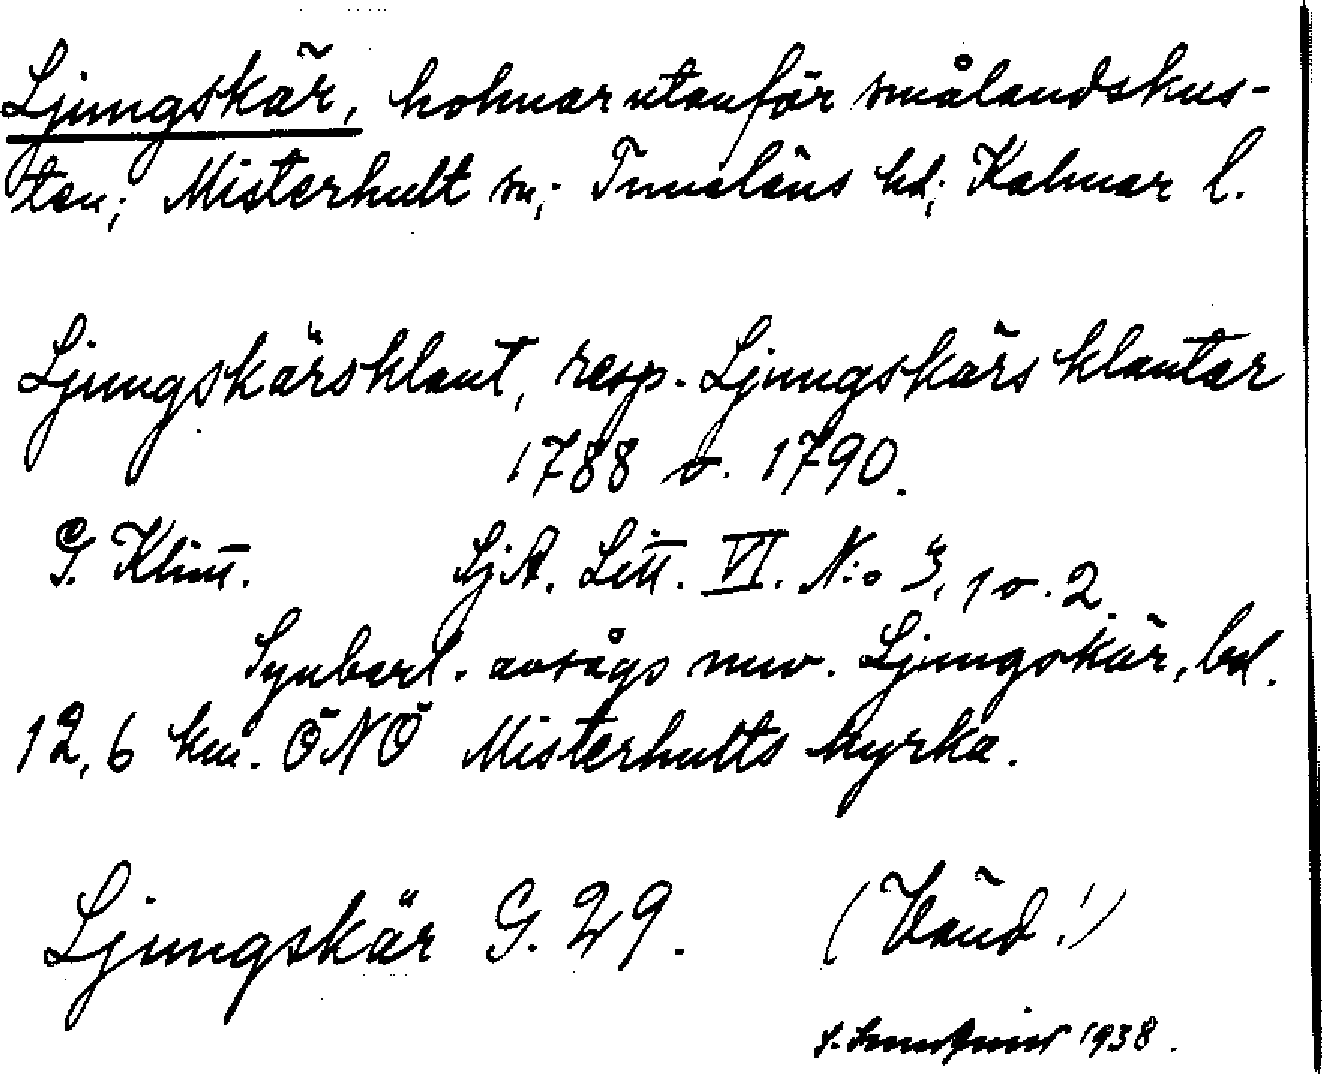 Ljungskär, holmar utanför smålandskus-
ten; Misterhult sn; Tunaläns hd; Kalmar l.
Ljungskärsklant, resp. Ljungskärs klantar
1788 o. 1790.
G. Klint. SjA. Litt. VI. N:o 3, 1 o. 2.
Synbarl. avsågs nuv. Ljungskär, bel.
12,6 km. ÖNÖ Misterhults kyrka.
Ljungskär G. 29. (Vänd!)
1938.